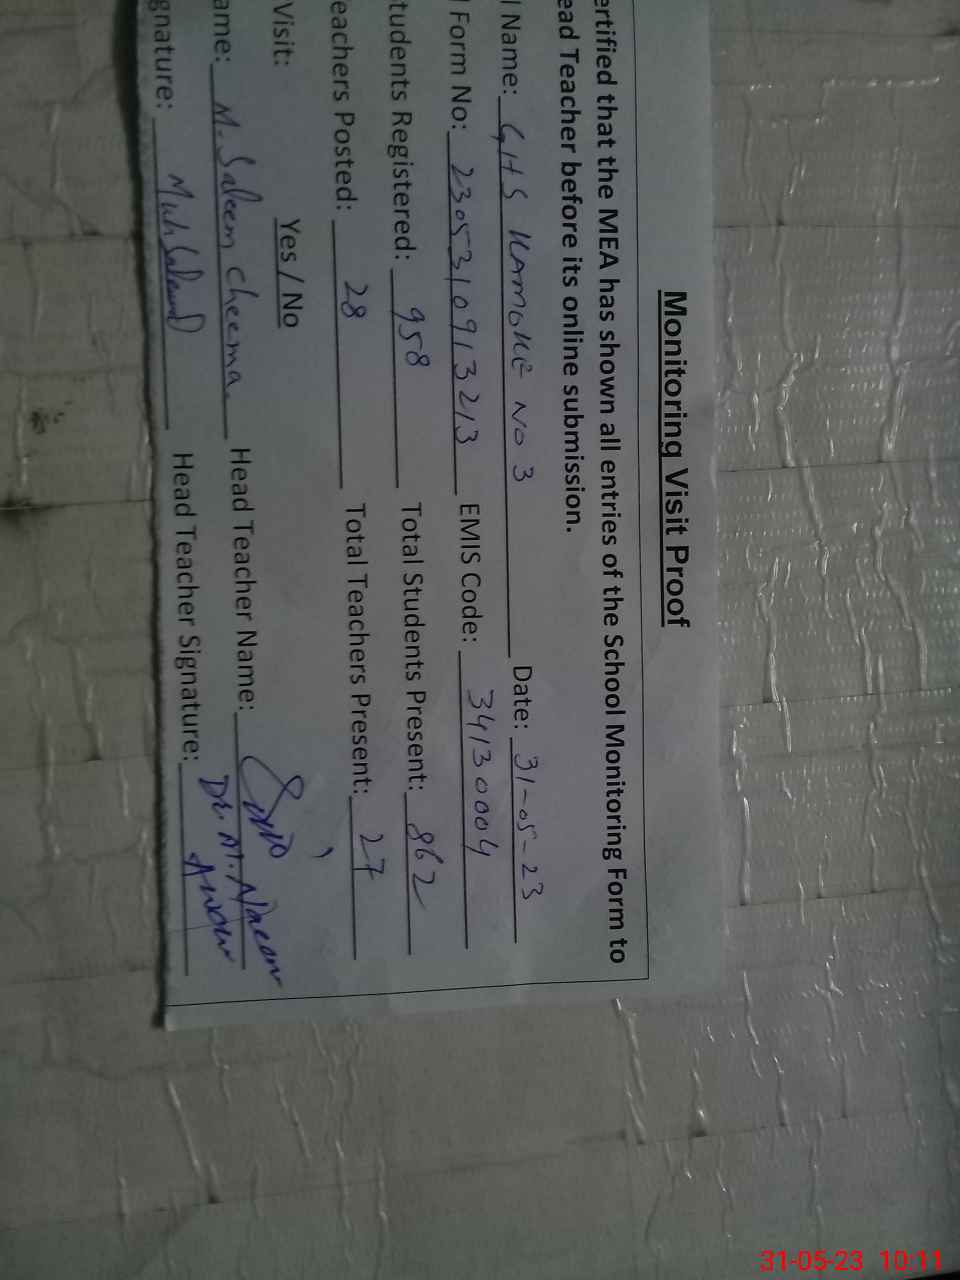 Monitoring Visit Proof
ertified that the MEA has shown all entries of the School Monitoring Form to
ead Teacher before its online submission.
l Name: GHS KAMOKE NO 3 Date: 31-05-23
l Form No: 2305310913213 EMIS Code: 34130004
tudents Registered: 958 Total Students Present: 862
eachers Posted: 28 Total Teachers Present: 27
Visit: Yes / No
ame: M. Saleem Cheema. Head Teacher Name: Dr. M. Naeem
gnature: Head Teacher Signature: Anwar
31-05-23 10:11